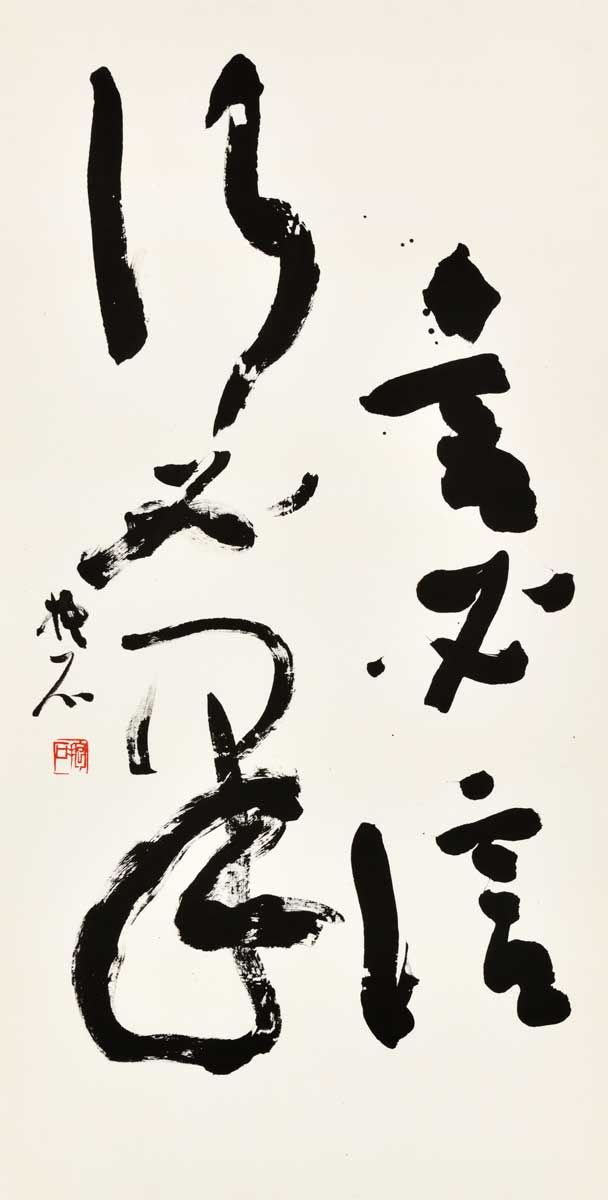 言必信
行必果
石